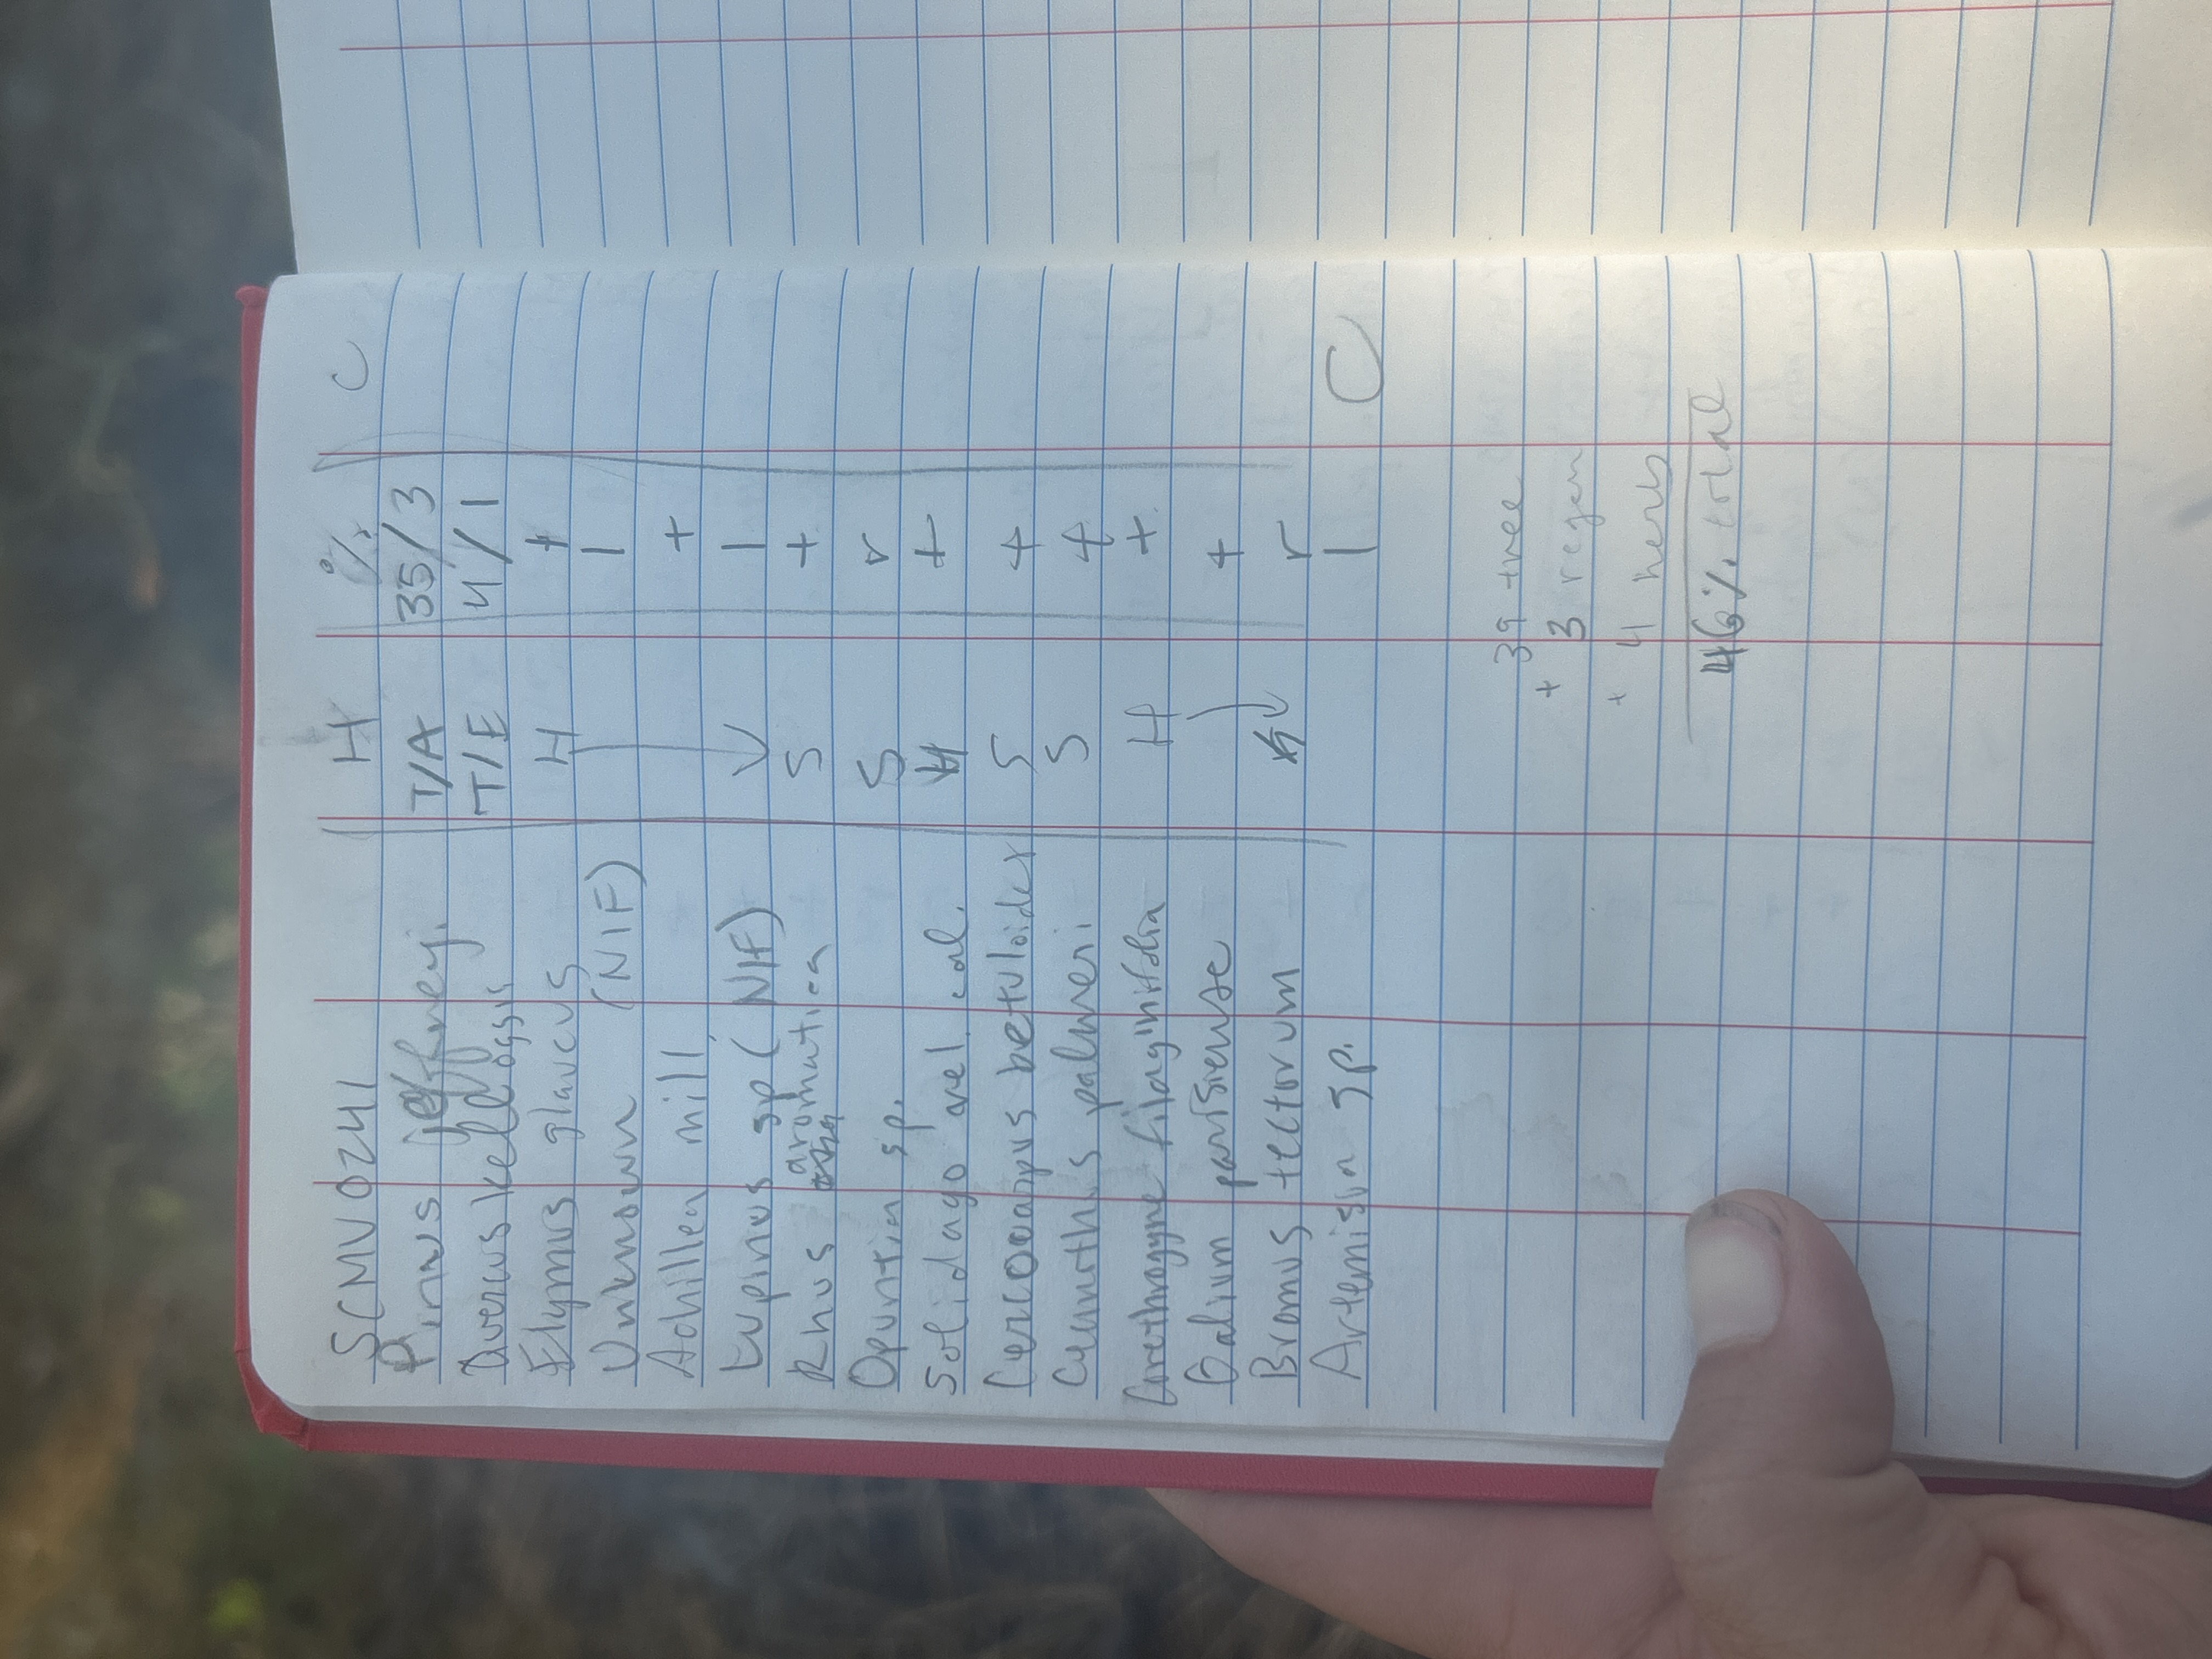 SCMV0241 H % C
Pinus jeffreyi T/A 35/3
Quercus kelloggii T/E 4/1
Elymus glaucus H +
Unknown (NIF) 1
Achillea mill. +
Lupinus sp (NIF) 1
Rhus aromatica S +
Opuntia sp. S r
Solidago vel. cal. H +
Cercocarpus betuloides S +
Ceanothus palmeri S +
Corethrogyne filaginifolia H +
Galium parisiense +
Bromus tectorum r
Artemisia sp. 1 C
39 tree
+ 3 regen
+ 4 herb
46% total